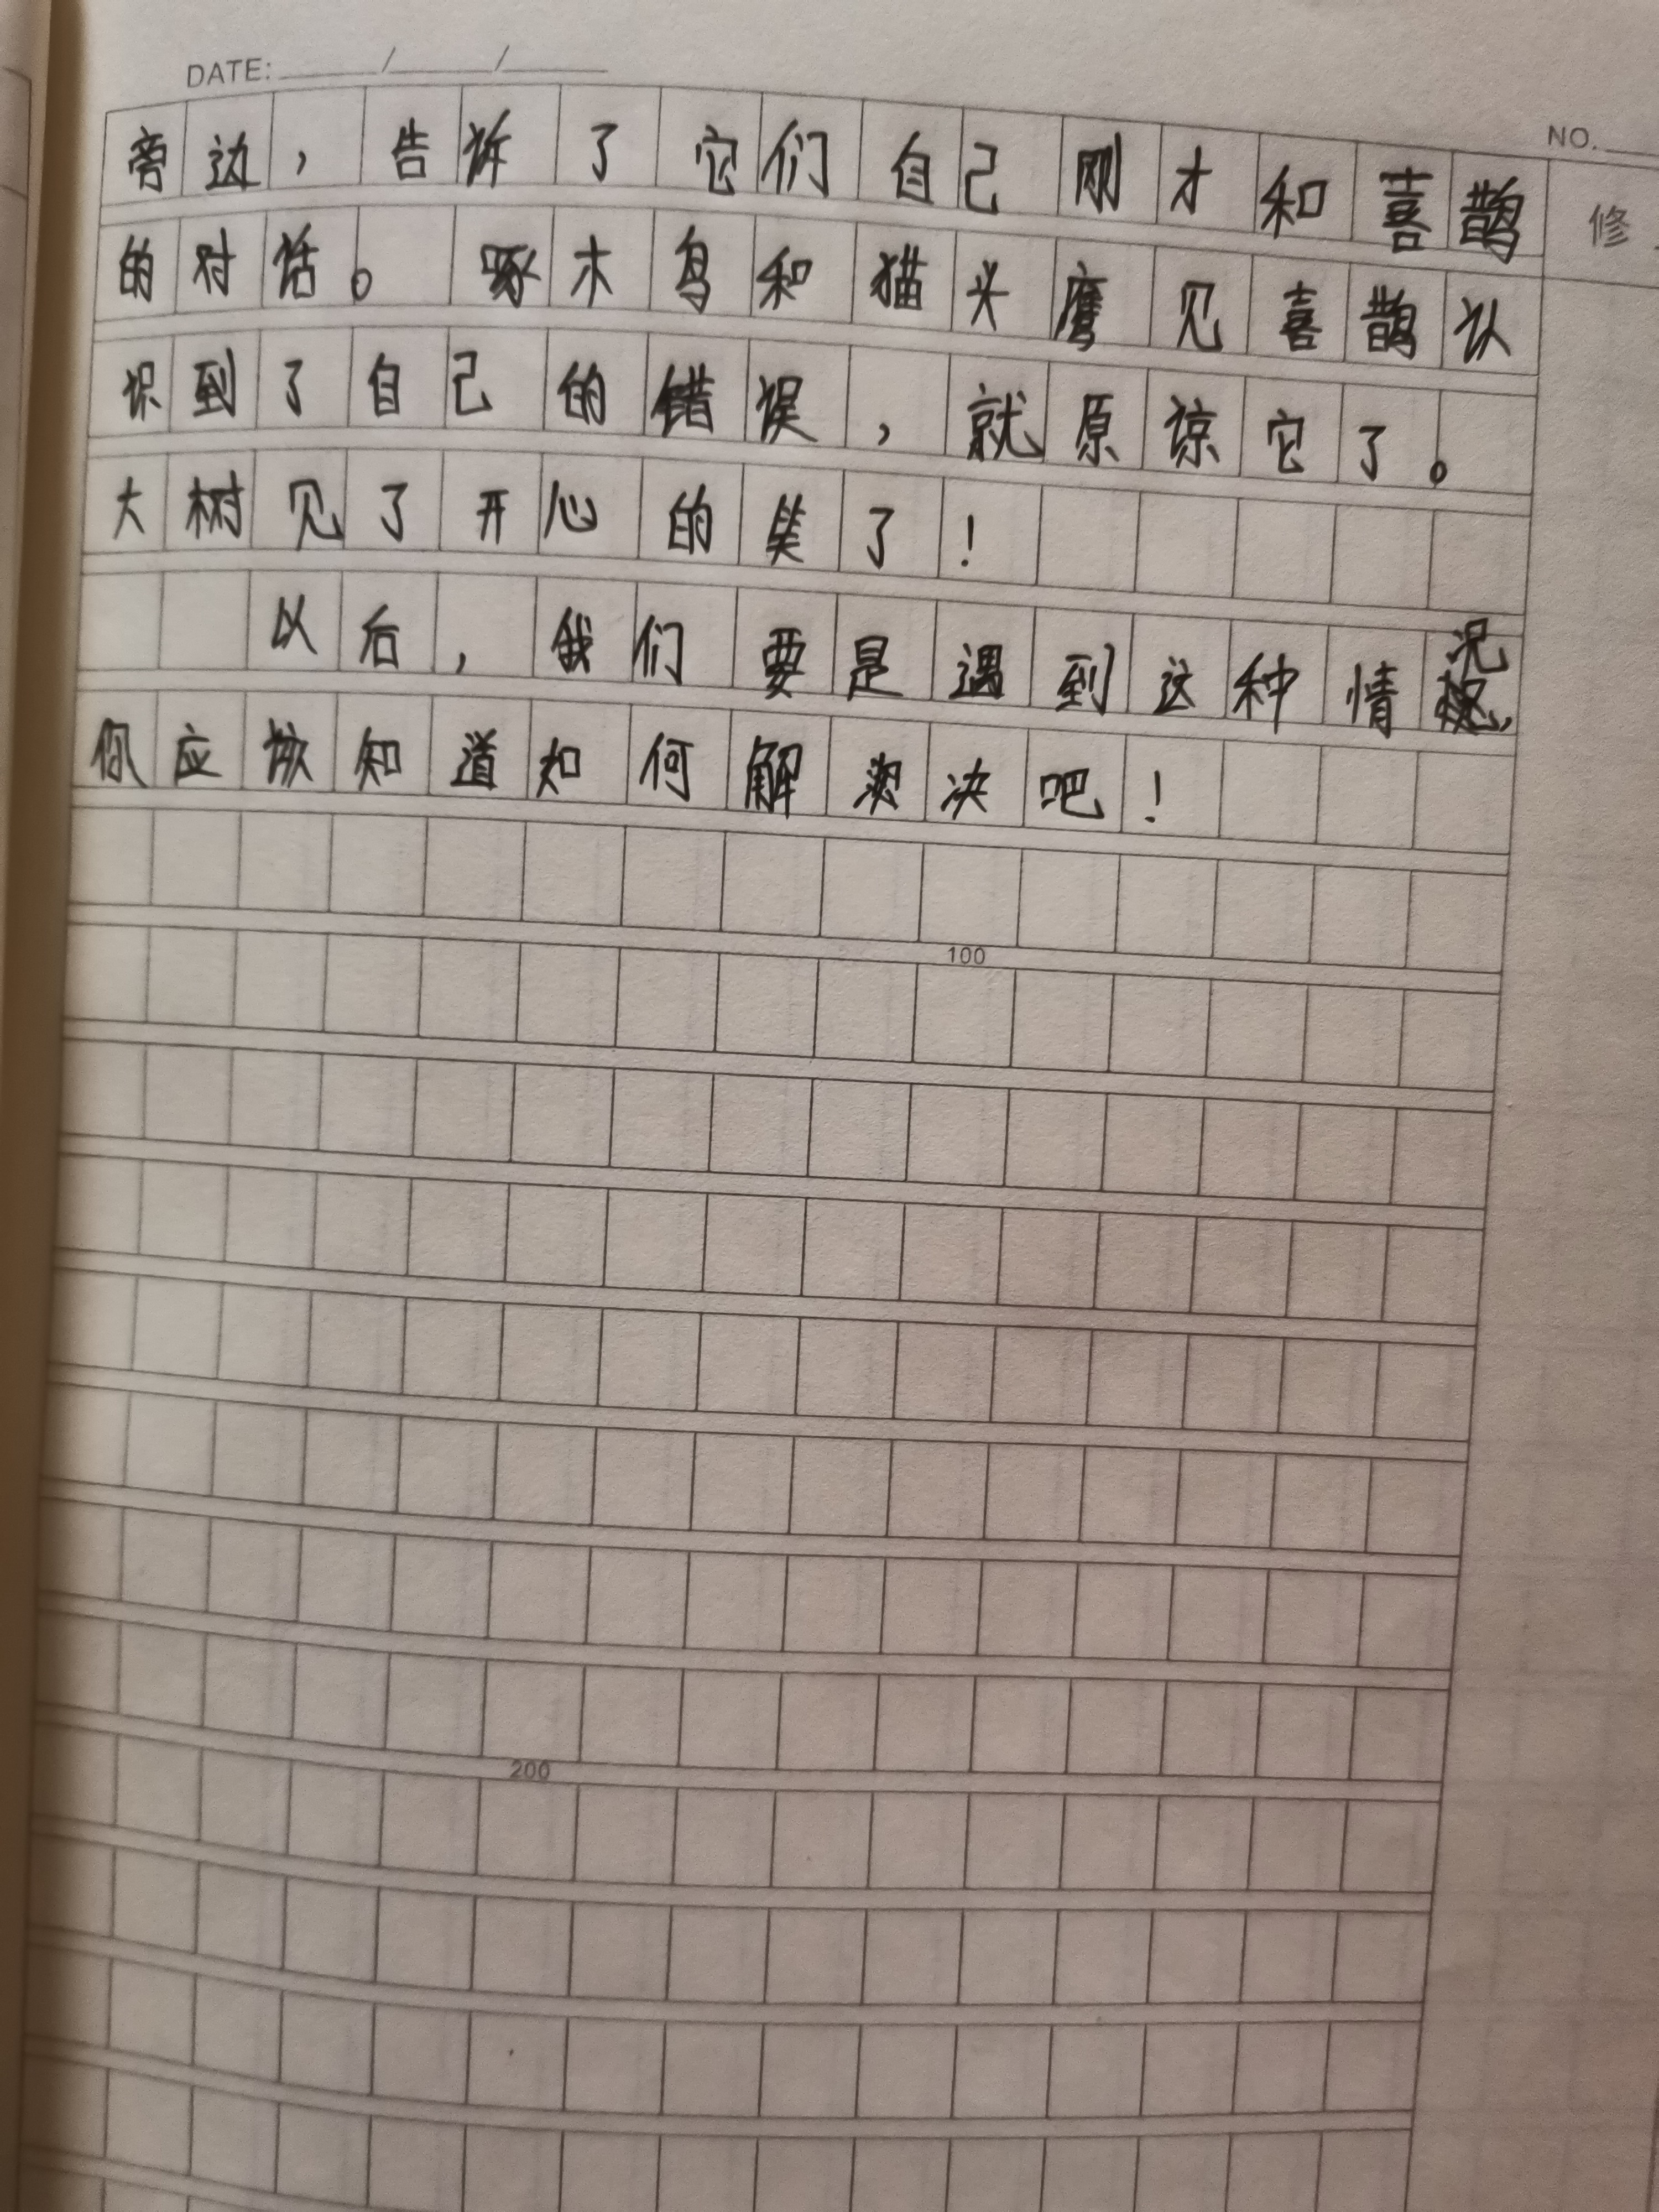 DATE: / /
NO.
旁边，告诉了它们自己刚才和喜鹊
修
的对话。啄木鸟和猫头鹰见喜鹊认
识到了自己的错误，就原谅它了。
大树见了开心的笑了！
以后，我们要是遇到这种情况，
你应该知道如何解决吧！
100
200